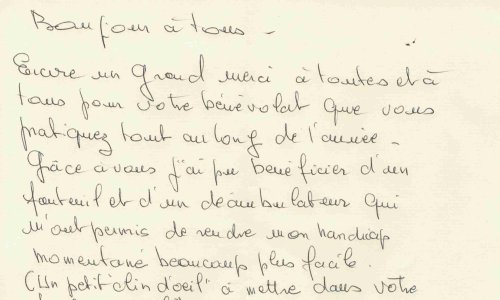 Bonjour à tous -
Encore un Grand merci à toutes et à
tous pour votre bénévolat que vous
pratiquez tout au long de l'année -
Grâce à vous j'ai pu bénéficier d'un
fauteuil et d'un déambulateur qui
m'ont permis de rendre mon handicap
momentané beaucoup plus facile.
(Un petit "clin d'oeil" à mettre dans votre